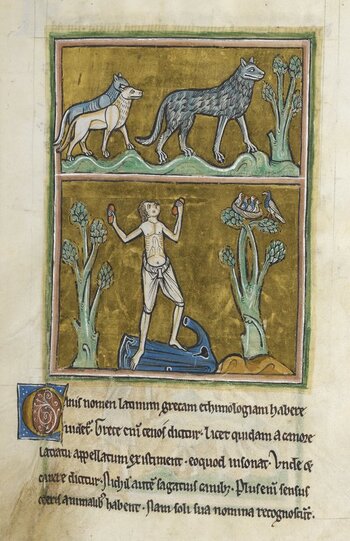 Canis nomen latinum grecam ethimologiam habere
uidet᷑. Grece eni᷑ cenos dicitur. licet quidam a canore
latratu appellatum existiment. eoquod insonat. Unde ⁊
canere dicitur. Nichil aute᷑ sagatius canib᷒. Plus eni᷑ sensus
ceteris animalib᷒ habent. Nam soli sua nomina recognoscunt.